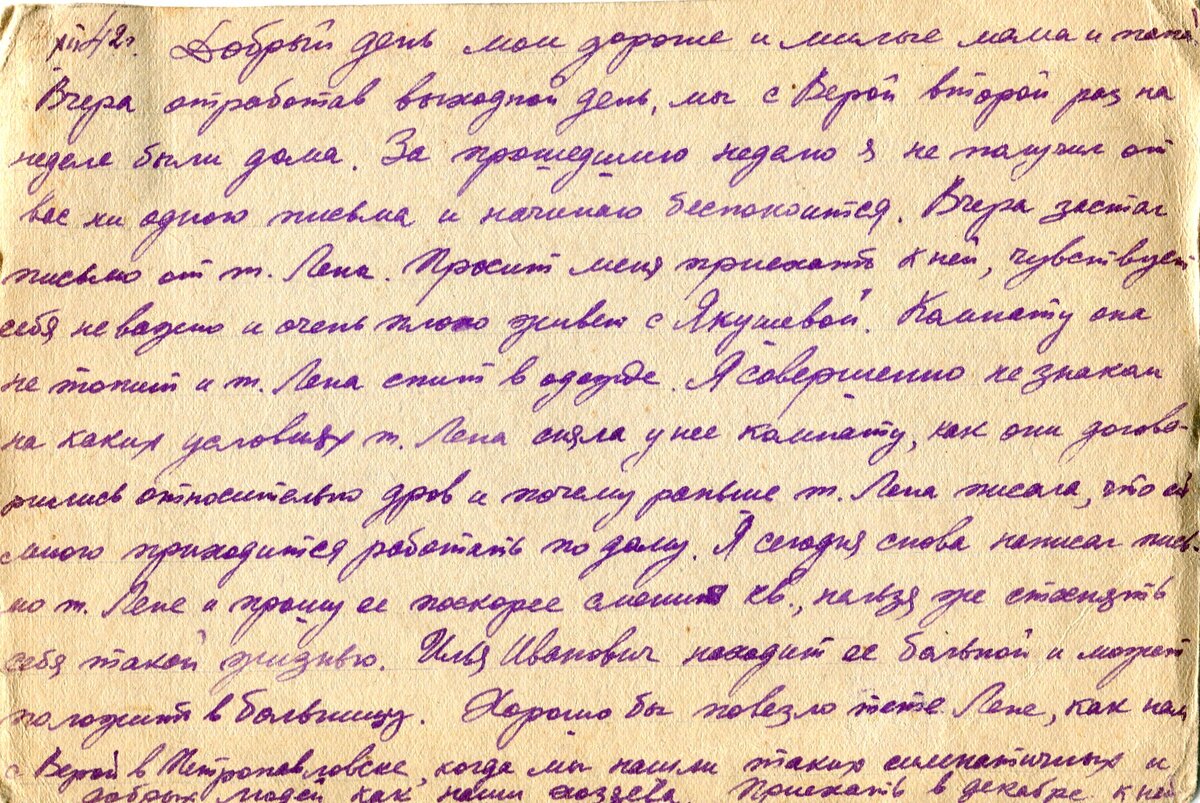 XII 42г. Добрый день мои дорогие и милые мама и папа
Вчера отработав выходной день, мы с Верой второй раз на
неделе были дома. За прошедшую неделю я не получил от
вас ни одного письма и начинаю беспокоится. Вчера застал
письмо от т. Лена. Просит меня приехать к ней, чувствует
себя неважно и очень плохо живет с Якушевой. Комнату она
не топит и т. Лена спит в одежде. Я совершенно не знаком
на каких условиях т. Лена сняла у нее комнату, как они догово-
рились относительно дров и почему раньше т. Лена писала, что ей
много приходится работать по дому. Я сегодня снова написал пись-
мо т. Лене и прошу ее поскорее сменить кв., нельзя же стеснять
себя такой жизнью. Илья Иванович находит ее больной и может
положить в больницу. Хорошо бы повезло тете Лене, как нам
с Верой в Петропавловске, когда мы нашли таких симпатичных и
добрых людей как наши хозяева. Приехать в декабре к ней